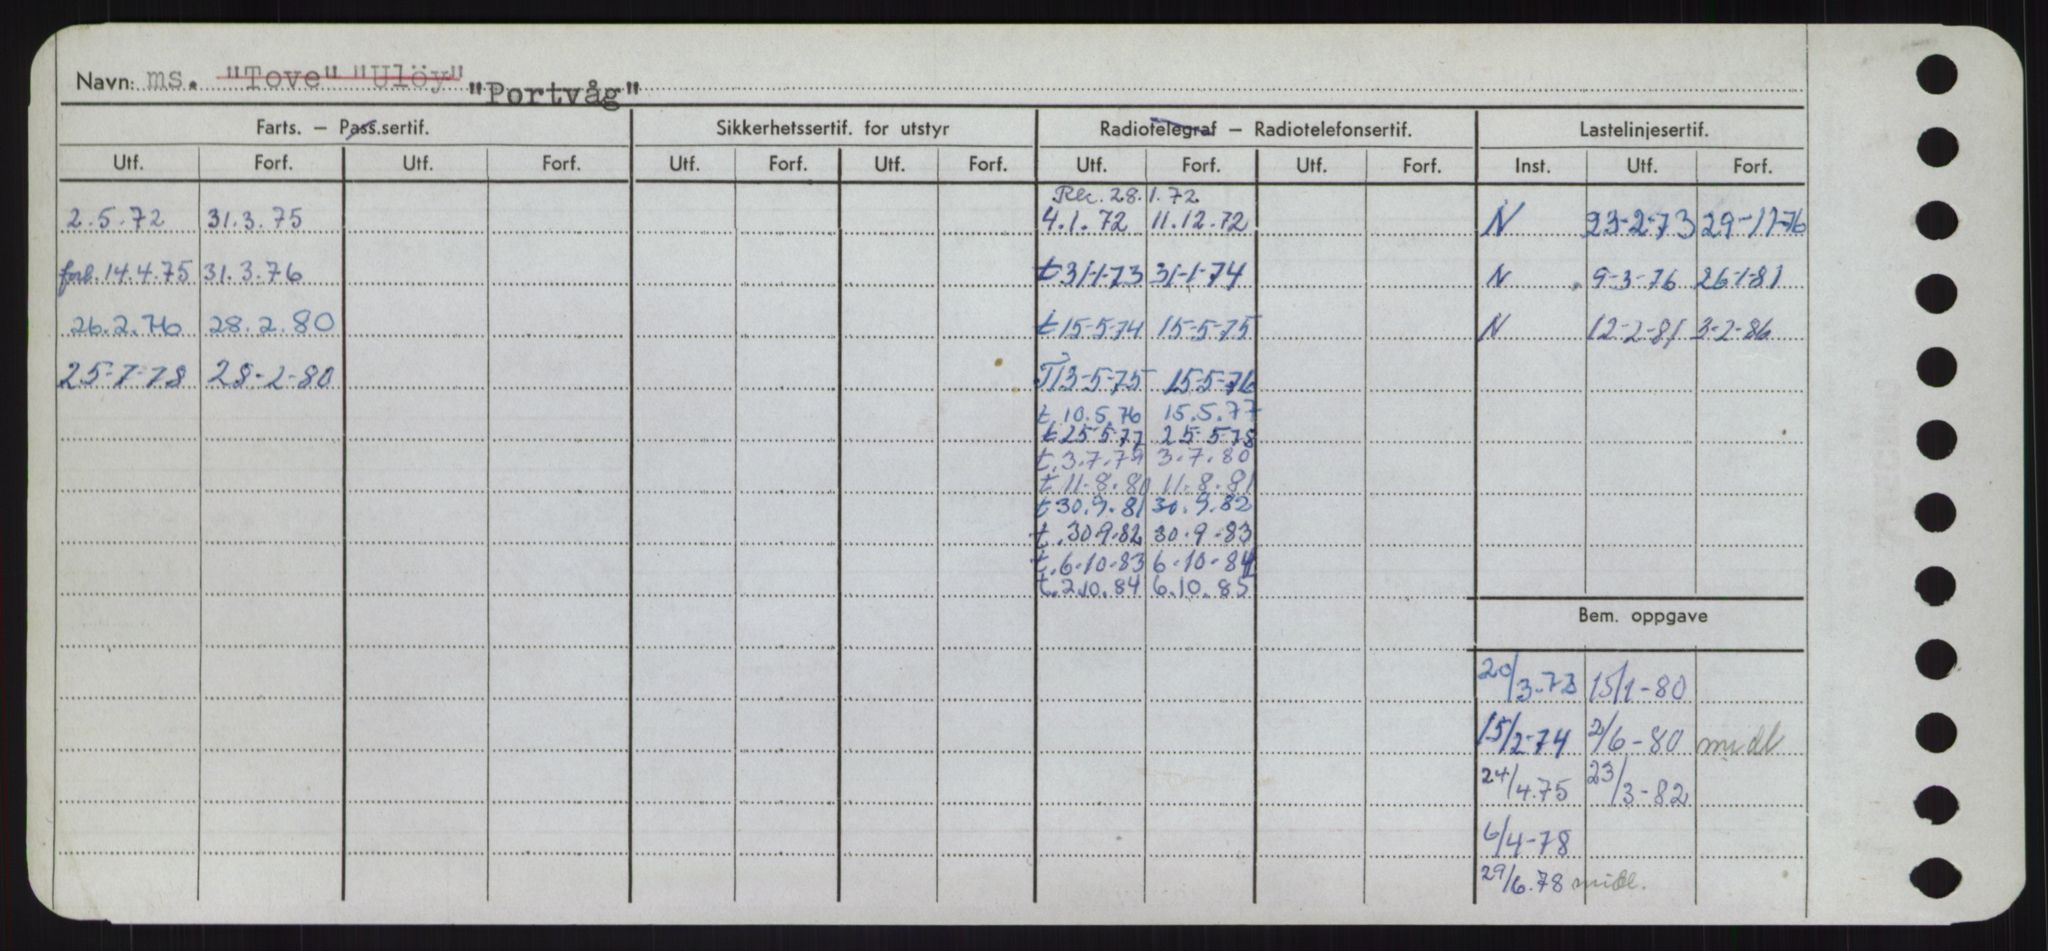 Navn: ms. "Tove" "Ulöy" "Portvåg"
Farts. – Pass.sertif. Sikkerhetssertif. for utstyr Radiotelegraf – Radiotelefonsertif. Lastelinjesertif.
Utf. Forf. Utf. Forf. Utf. Forf. Utf. Forf. Utf. Forf. Utf. Forf. Inst. Utf. Forf.
Rk. 28.1.72
2.5.72 31.3.75 4.1.72 11.12.72 N 23-2-73 29-11-76
forl. 14.4.75 31.3.76 t 31-1-73 31-1-74 N 9-3-76 26-1-81
26.2.76 28.2.80 t 15-5-74 15-5-75 N 12-2-81 3-2-86
25-7-78 28-2-80 T 13-5-75 15-5-76
t. 10.5.76 15.5.77
t 25-5-77 25-5-78
t. 3.7.79 3.7.80
t 11.8.80 11.8.81
t 30.9.81 30.9.82
t. 30.9.82 30.9.83
t. 6.10.83 6.10.84
t. 2.10.84 6.10.85
Bem. oppgave
20/3-73 15/1-80
15/2-74 2/6-80 midl
24/4.75 23/3-82
6/4-78
29/6.78 midl.